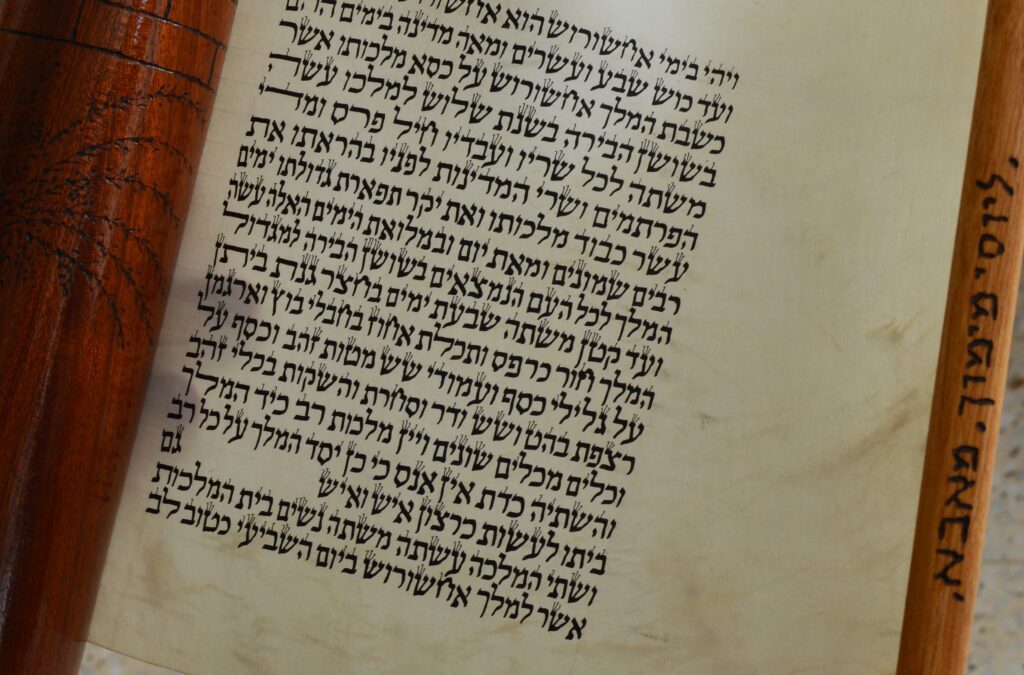 ויהי בימי אחשורוש הוא אחשורוש
ועד כוש שבע ועשרים ומאה מדינה בימים ההם
כשבת המלך אחשורוש על כסא מלכותו אשר
בשושן הבירה בשנת שלוש למלכו עשה
משתה לכל שריו ועבדיו חיל פרס ומדי
הפרתמים ושרי המדינות לפניו בהראתו את
עשר כבוד מלכותו ואת יקר תפארת גדולתו ימים
רבים שמונים ומאת יום ובמלואת הימים האלה עשה
המלך לכל העם הנמצאים בשושן הבירה למגדול
ועד קטן משתה שבעת ימים בחצר גנת ביתן
המלך חור כרפס ותכלת אחוז בחבלי בוץ וארגמן
על גלילי כסף ועמודי שש מטות זהב וכסף על
רצפת בהט ושש ודר וסחרת והשקות בכלי זהב
וכלים מכלים שונים ויין מלכות רב כיד המלך
והשתיה כדת אין אנס כי כן יסד המלך על כל רב
ביתו לעשות כרצון איש ואיש גם
ושתי המלכה עשתה משתה נשים בית המלכות
אשר למלך אחשורוש ביום השביעי כטוב לב
ליוסי